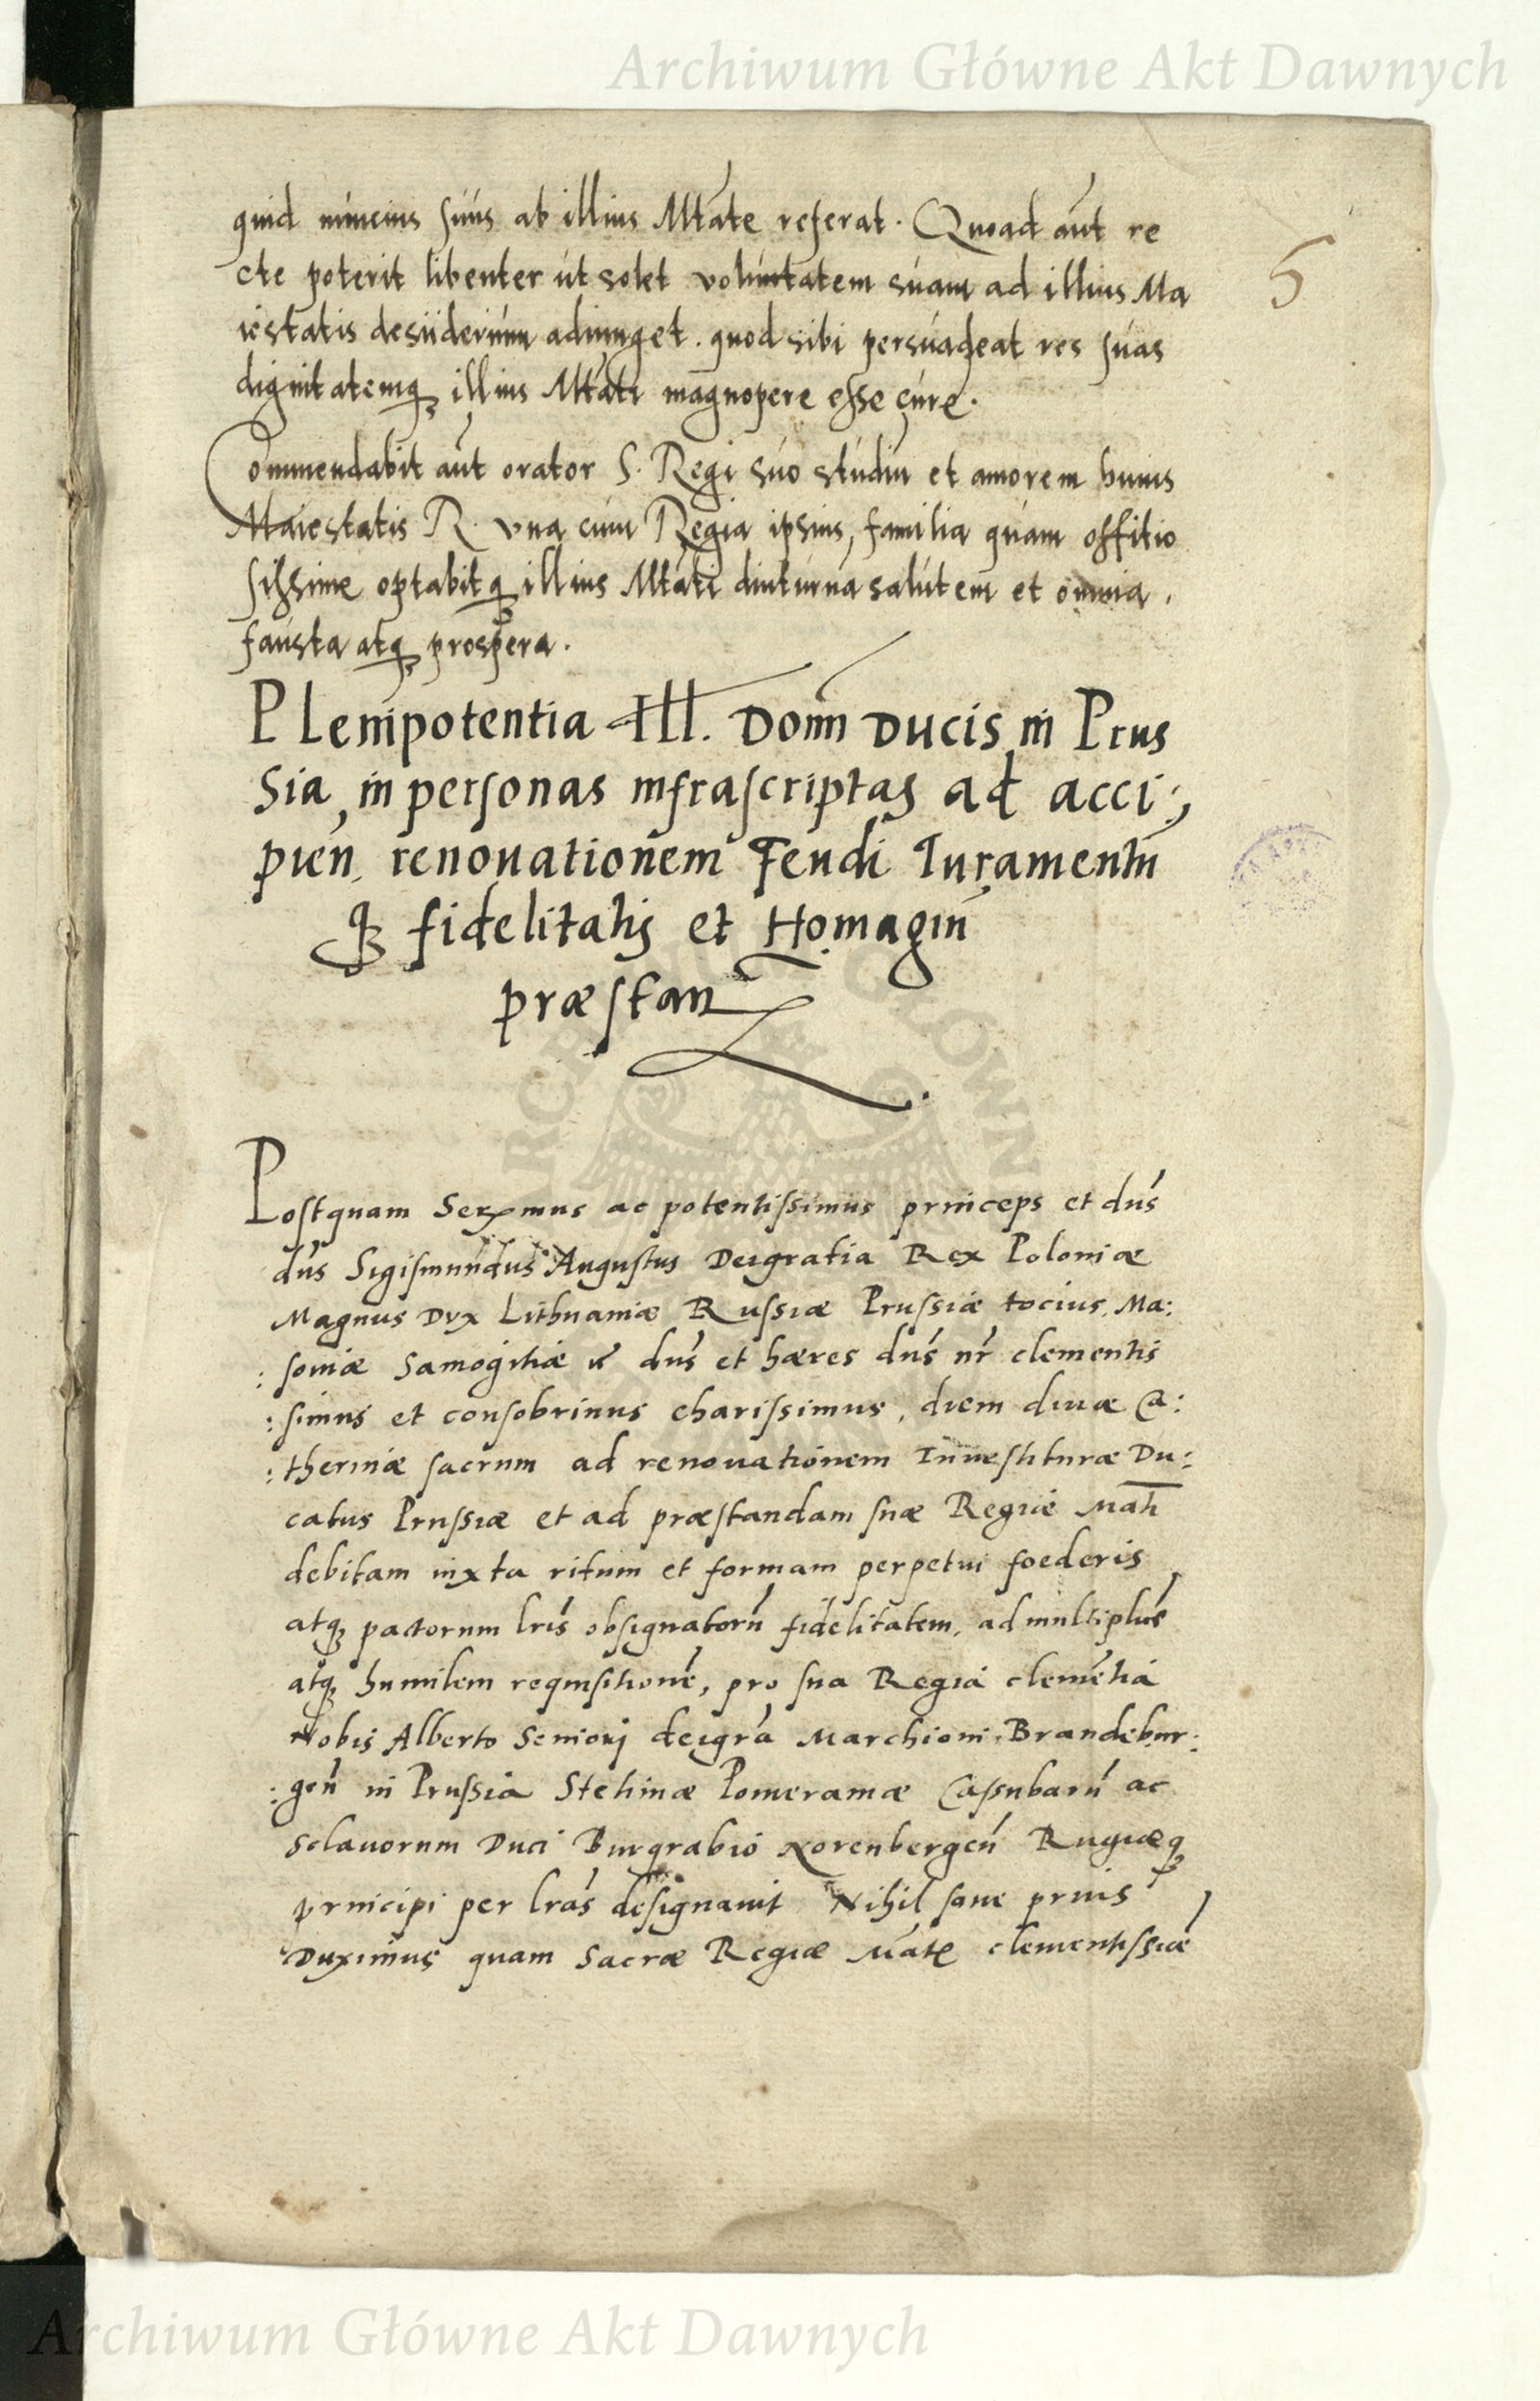 Archiwum Główne Akt Dawnych
5
quid nuncius suus ab illius Mtate referat. Quoad aut re
cte poterit libenter ut solet voluntatem suam ad illius Ma
iestatis desiiderium adiunget. quod sibi persuadeat res suas
dignitatemq illius Mtati magnopere esse cure.
Commendabit aut orator S. Regi suo studiu et amorem huius
Maiestatis R. una cum Regia ipsius, familia quam offitio
sissime optabitq illius Mtati diuturna salutem et omnia,
fausta atq prospera.
PLenipotentia Ill. Domi Ducis in Prus
sia, in personas infrascriptas ad acci:,
pien, renouationem Feudi Iuramentu
q fidelitatis et Homagiu
præstan
Postquam Serᵐmus ac potentissimus princeps et dns
dns Sigismundus Augustus Deigratia Rex Poloniæ
Magnus Dux Lithuaniæ Russiæ Prussiæ tocius, Ma:
: soviæ Samogitiæ dns et hæres dns nr clementis
: simus et consobrinus charissimus, diem divæ Ca:
: therinæ sacrum ad renouationem Inuestituræ Du:
catus Prussiæ et ad præstandam suæ Regiæ Mati
debitam iuxta ritum et formam perpetui foederis
atq pactorum lris obsignatoru fidelitatem, ad multiplice
atq humilem requisitione, pro sua Regia clemetia
Nobis Alberto Seniori deigra Marchioni Brandebur:
: gen in Prussia Stetinæ Pomeraniæ Cassubaru ac
Sclavorum Duci Burgrabio Norenbergen Rugiæq
principi per lras designavit Nihil sane prius
Duximus quam Sacræ Regiæ Matis clementissiæ
Archiwum Główne Akt Dawnych